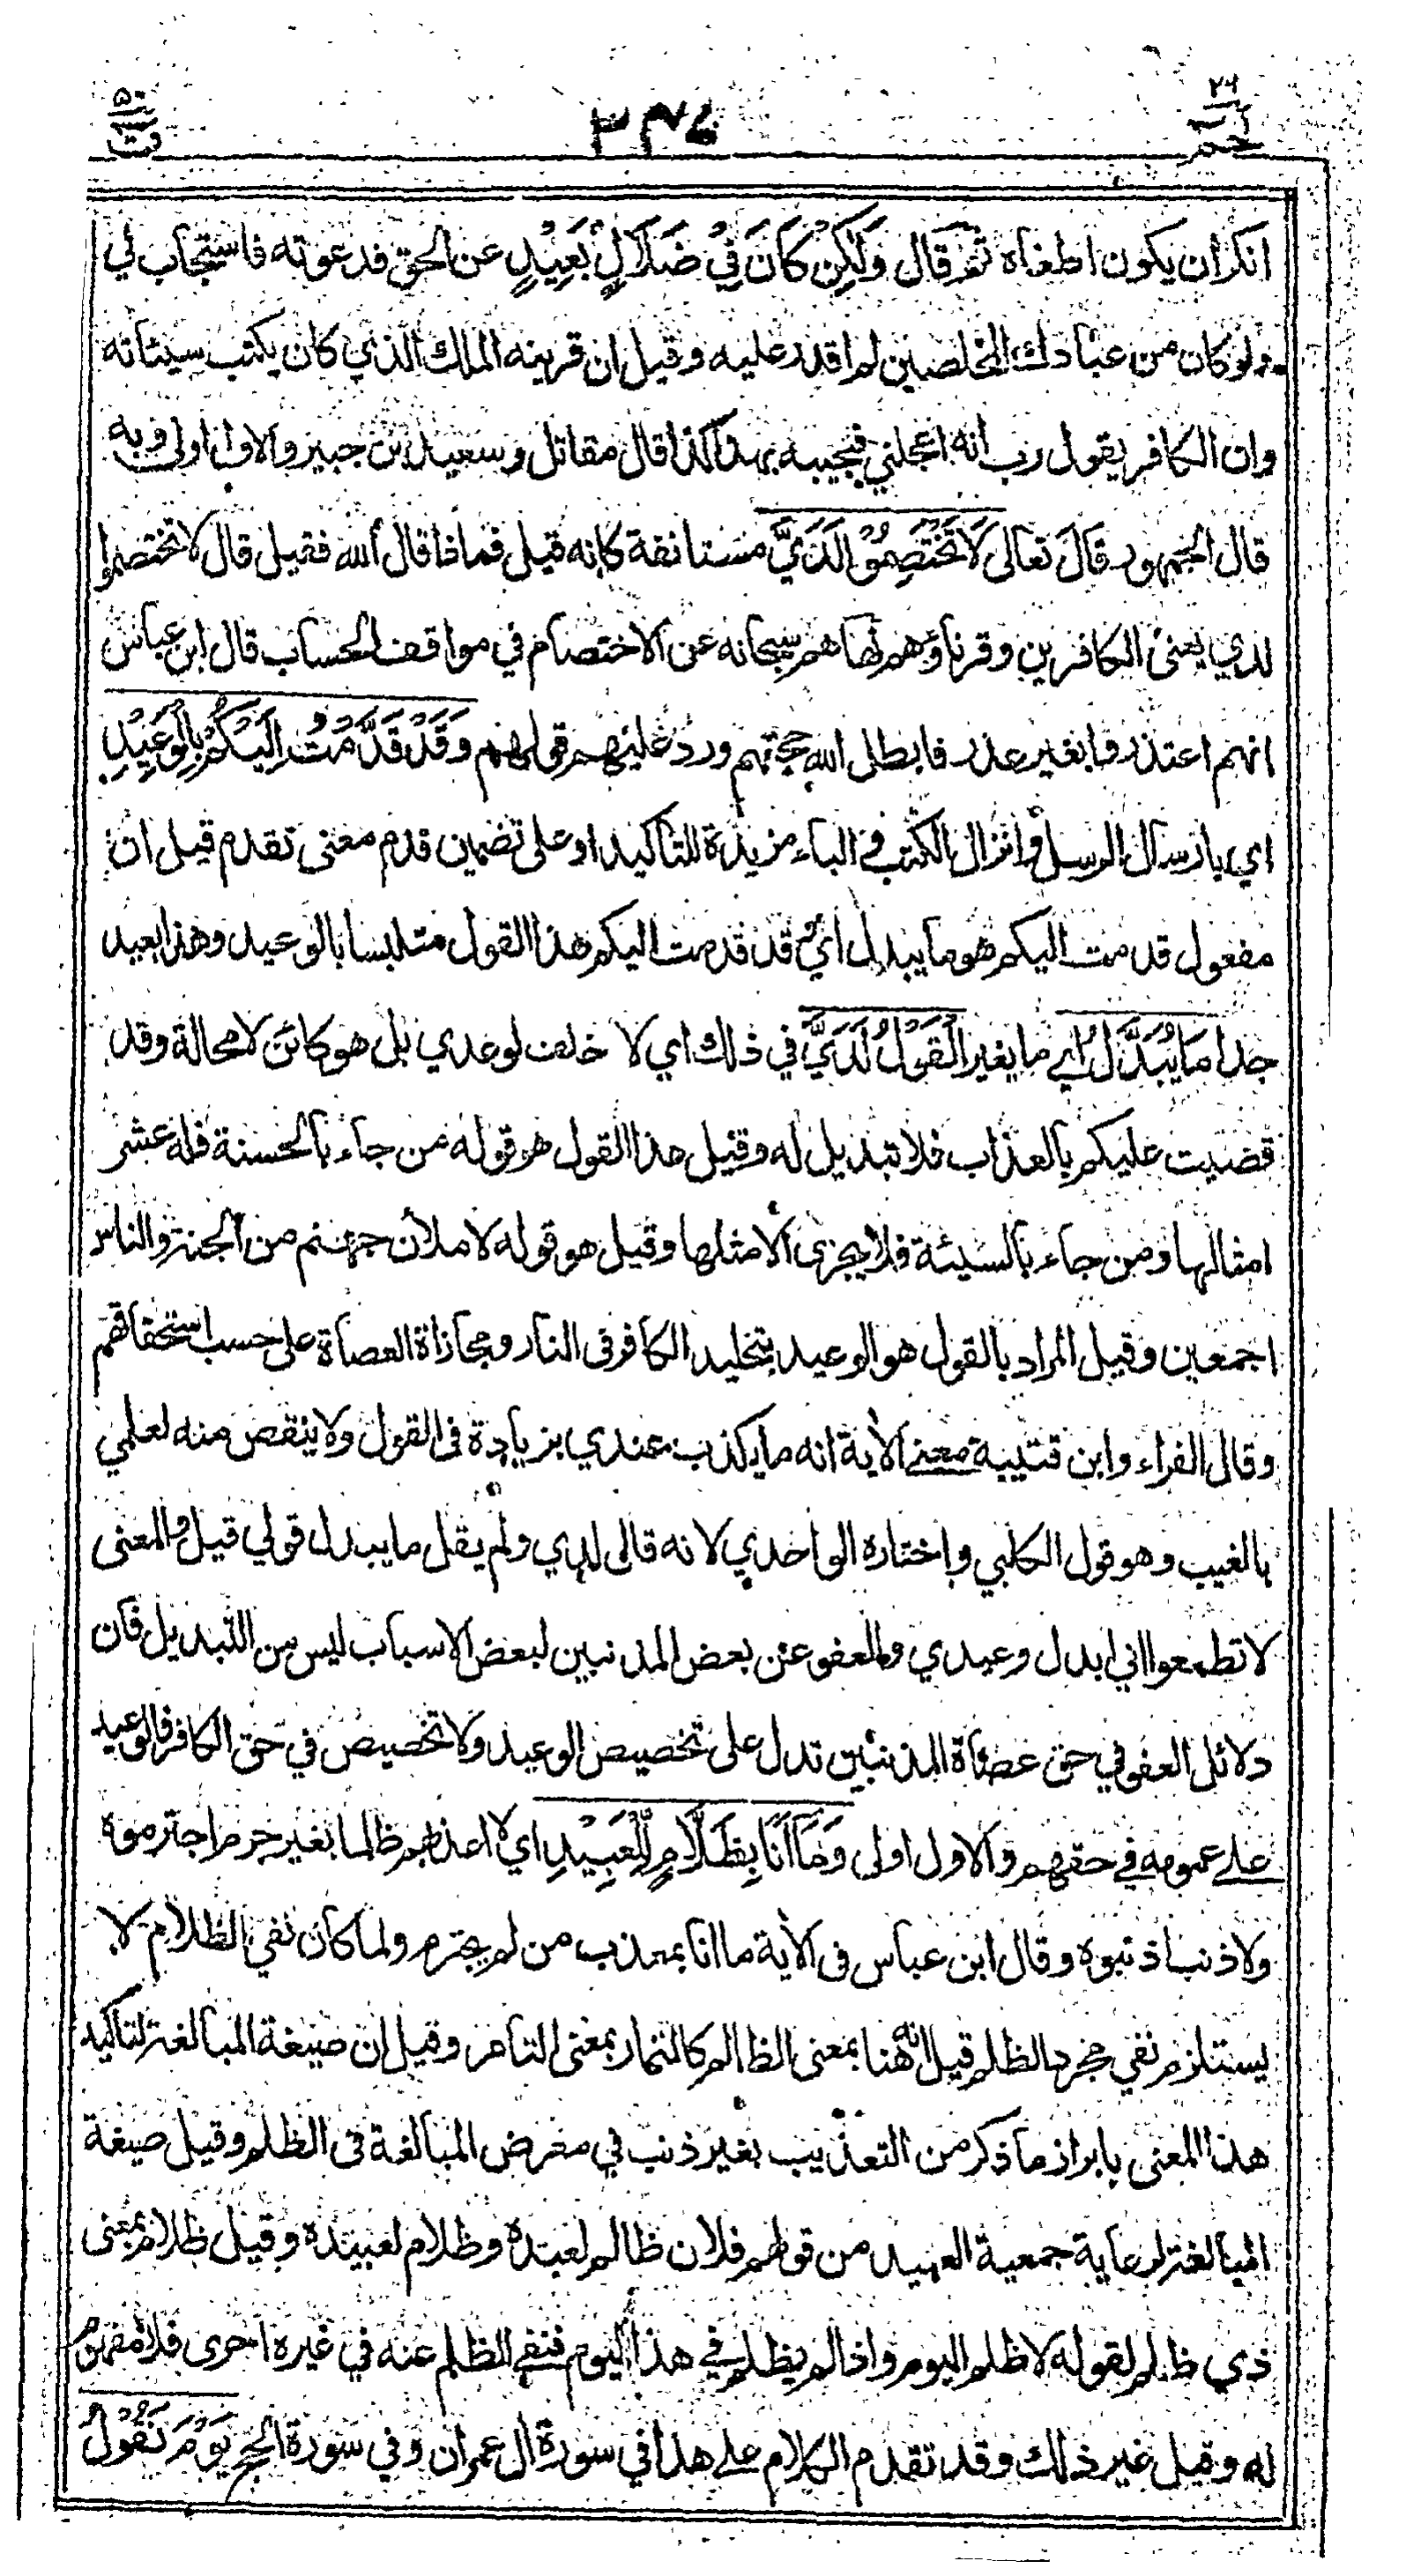 ٢٦
حٰم
٣٤٤
٥٠
قٓ
انكر ان يكون اطغاه ثم قال وَلٰكِنْ كَانَ فِيْ ضَلَالٍ بَعِيْدٍ عن الحق فدعوته فاستجاب لي
ولو كان من عبادك المخلصين لم اقدر عليه وقيل ان قرينه الملك الذي كان يكتب سيئاته
وان الكافر يقول رب انه اعجلني فيجيبه بهذا كذا قال مقاتل وسعيد بن جبير والاول اولى وبه
قال الجمهور قَالَ تعالى لَا تَخْتَصِمُوْا لَدَيَّ مستانفة كانه قيل فماذا قال الله فقيل قال لا تختصموا
لدي يعني الكافرين وقرناؤهم نهاهم سبحانه عن الاختصام في مواقف الحساب قال ابن عباس
انهم اعتذروا بغير عذر فابطل الله حجتهم ورد عليهم قولهم وَقَدْ قَدَّمْتُ اِلَيْكُمْ بِالْوَعِيْدِ
اي بارسال الرسل وانزال الكتب في الباء مزيدة للتاكيد او على تضمين قدم معنى تقدم قيل ان
مفعول قدمت اليكم هو ما يبدل اي قد قدمت اليكم هذا القول متلبسا بالوعيد وهذا بعيد
جدا مَا يُبَدَّلُ اي ما يغير الْقَوْلُ لَدَيَّ في ذلك اي لا خلف لوعدي بل هو كائن لا محالة وقد
قضيت عليكم بالعذاب فلا تبديل له وقيل هذا القول هو قوله من جاء بالحسنة فله عشر
امثالها ومن جاء بالسيئة فلا يجزى الا مثلها وقيل هو قوله لاملأن جهنم من الجنة والناس
اجمعين وقيل المراد بالقول هو الوعيد بتخليد الكافر في النار ومجازاة العصاة على حسب استحقاقهم
وقال الفراء وابن قتيبة معنى الاية انه ما يكذب عندي بزيادة في القول ولا ينقص منه لعلمي
بالغيب وهو قول الكلبي واختاره الواحدي لانه قال لدي ولم يقل ما يبدل قولي قيل والمعنى
لا تطمعوا اني ابدل وعيدي والعفو عن بعض المذنبين لبعض الاسباب ليس من التبديل فان
دلائل العفو في حق عصاة المذنبين تدل على تخصيص الوعيد ولا تخصيص في حق الكافر فالوعيد
على عمومه في حقهم والاول اولى وَمَا اَنَا بِظَلَّامٍ لِّلْعَبِيْدِ اي لا اعذبهم ظلما بغير جرم اجترموه
ولا ذنب اذنبوه وقال ابن عباس في الاية ما انا بمعذب من لم يجترم ولما كان نفي الظلام لا
يستلزم نفي مجرد الظلم قيل انه هنا بمعنى الظالم كالتمار بمعنى التامر وقيل ان صيغة المبالغة لتاكيد
هذا المعنى بابراز ما ذكر من التعذيب بغير ذنب في معرض المبالغة في الظلم وقيل صيغة
المبالغة لرعاية جمعية العبيد من قولهم فلان ظالم لعبده وظلام لعبيده وقيل ظلام بمعنى
ذي ظلم لقوله لا ظلم اليوم واذا لم يظلم في هذا اليوم فنفي الظلم عنه في غيره احرى فلا مفهوم
له وقيل غير ذلك وقد تقدم الكلام على هذا في سورة ال عمران وفي سورة الحج يَوْمَ نَقُوْلُ